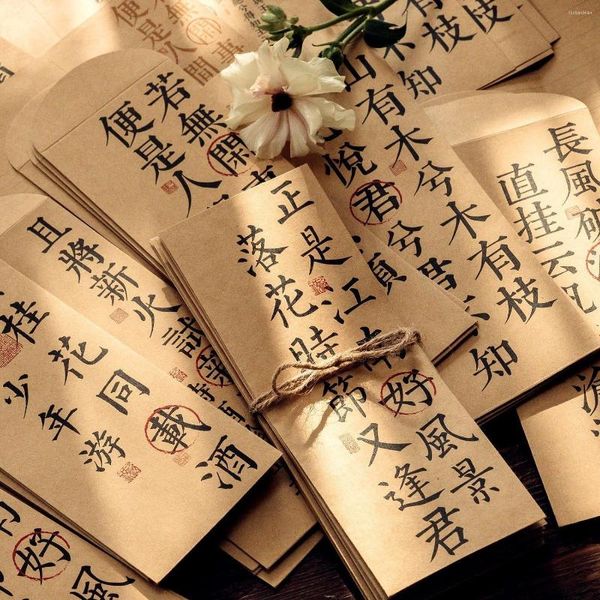 木有枝
知
便是人間
若無閑事
便是人
山有木兮木有枝
悅君兮君
知
長風破
直挂云帆
且將新火試
桂花同載酒
少年游
正是江南好風景
落花時節又逢君
好風